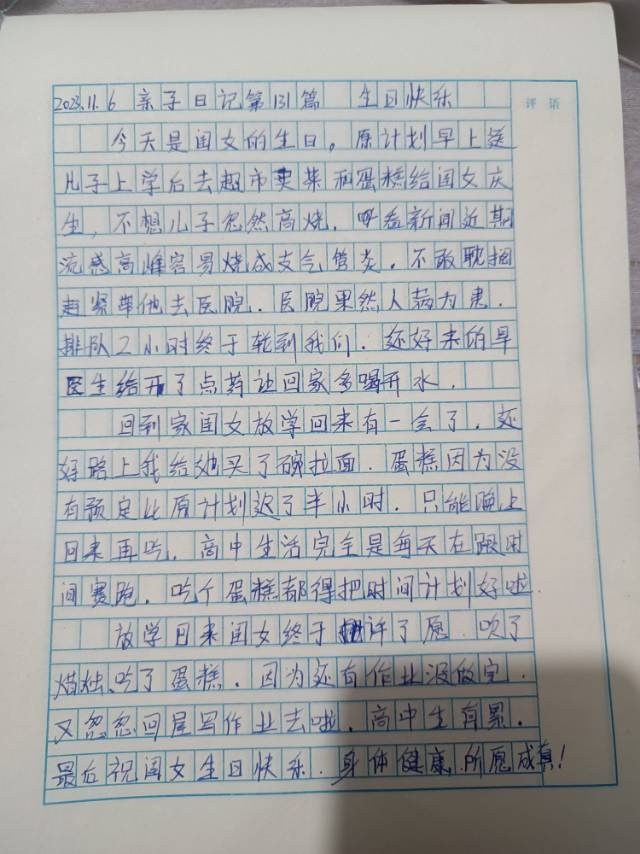 2023.11.6 亲子日记第131篇 生日快乐
评语
今天是闺女的生日。原计划早上送
儿子上学后去超市买菜和蛋糕给闺女庆
生，不想儿子忽然高烧.呼吸新闻近期
流感高峰容易烧成支气管炎.不敢耽搁
赶紧带他去医院.医院果然人满为患.
排队2小时终于轮到我们.还好来的早
医生给开了点药让回家多喝开水.
回到家闺女放学回来有一会了.还
好路上我给她买了碗拉面.蛋糕因为没
有预定比原计划迟了半小时.只能晚上
回来再吃.高中生活完全是每天在跟时
间赛跑.吃个蛋糕都得把时间计划好啦
放学回来闺女终于许了愿.吹了
蜡烛、吃了蛋糕.因为还有作业没做完.
又忽忽回屋写作业去啦.高中生有累.
最后祝闺女生日快乐.身体健康.所愿成真！